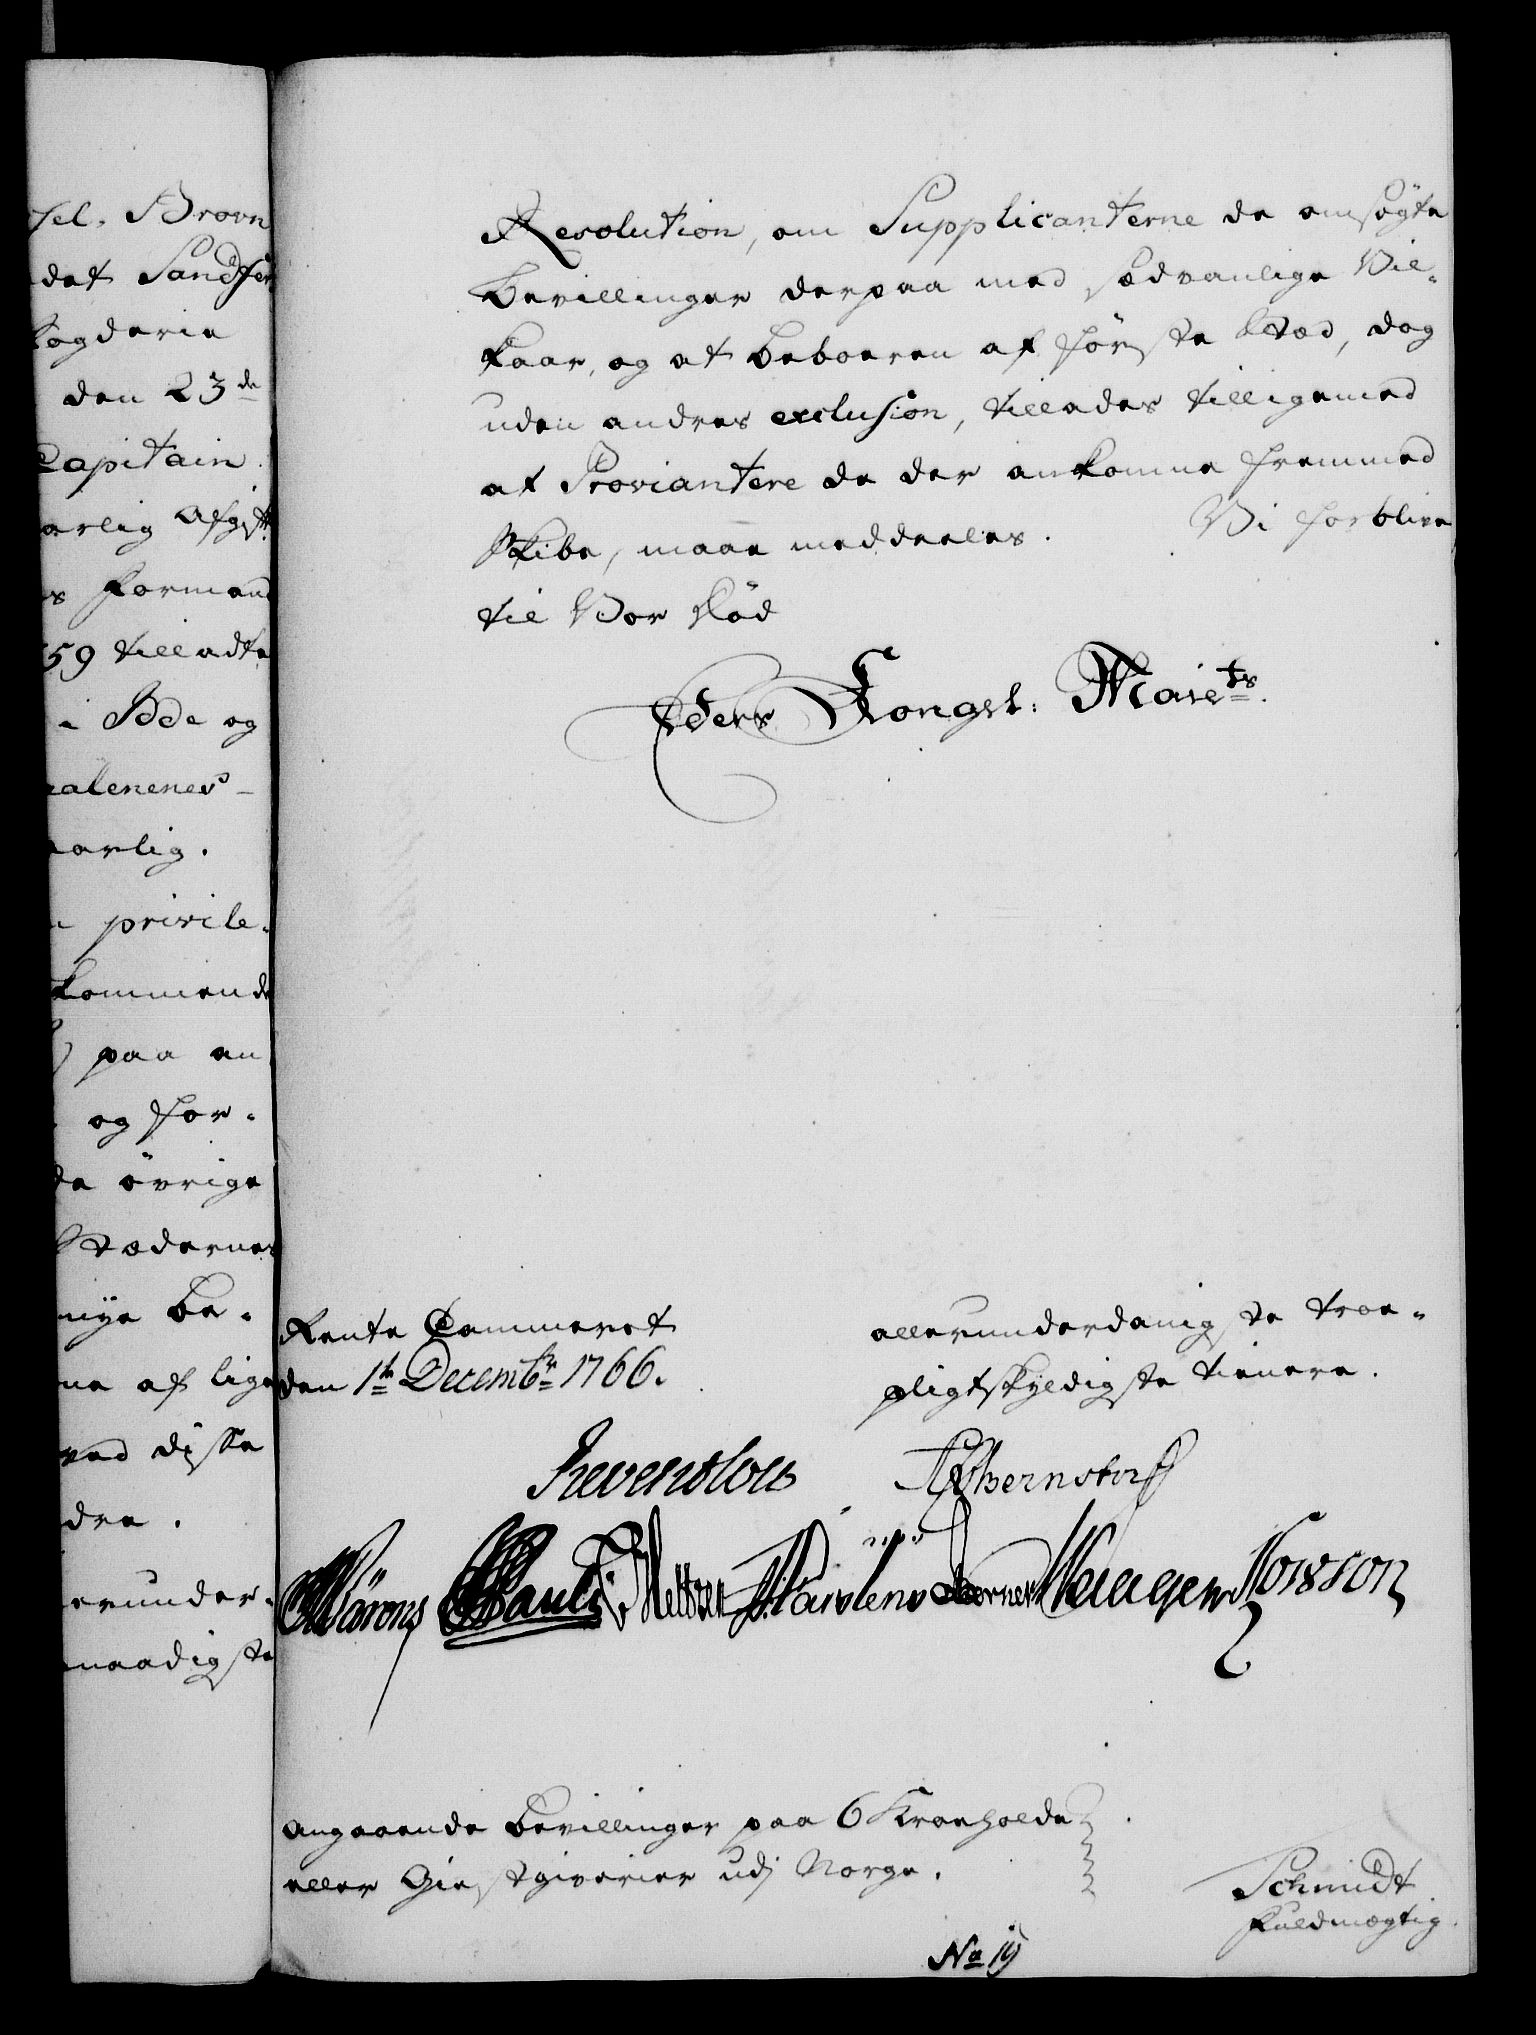 sel. Brovn
det Sandfer
Fogderie
den 23de
Capitain
arlig Afgift
s Formand
59 tilladte
i Idde og
alenenes
aarlig.
privile-
kommende
paa en
og for-
de övrige
Stædernes
nye be-
ne af lige
ved disse
dre.
erunder-
naadigste
Resolution, om Supplicanterne de omsøgte
Bevillinger derpaa med sædvanlige Vil-
kaar, og at Beboeren af første Stæd, dog
uden andres exclusion, tillades tilligemed
at Proviantere de der ankomne fremmed
Skibe, maae meddeeles. Vi forblive
til Vor Død
Eders Kongel: Maiets.
Rente Cammeret
den 1te Decembr 1766.
allerunderdanigste troe-
pligtskyldigste tienere.
Reventlou AGBernstorff
Pauli
angaaende Bevillinger paa 6 Kroehold
eller Giestgiverier udj Norge.
Schmidt
Fuldmægtig.
No 19